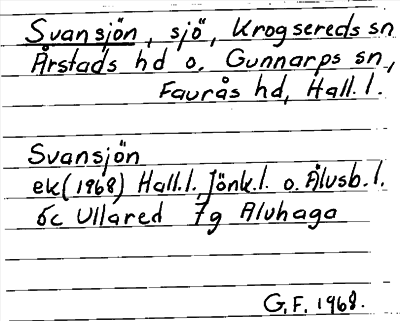 Svansjön, sjö, Krogsereds sn
Årstads hd o. Gunnarps sn,
Faurås hd, Hall. l.
Svansjön
ek (1968) Hall. l. Jönk. l. o. Älvsb. l.
5c Ullared 7g Alvhaga
G.F. 1968.